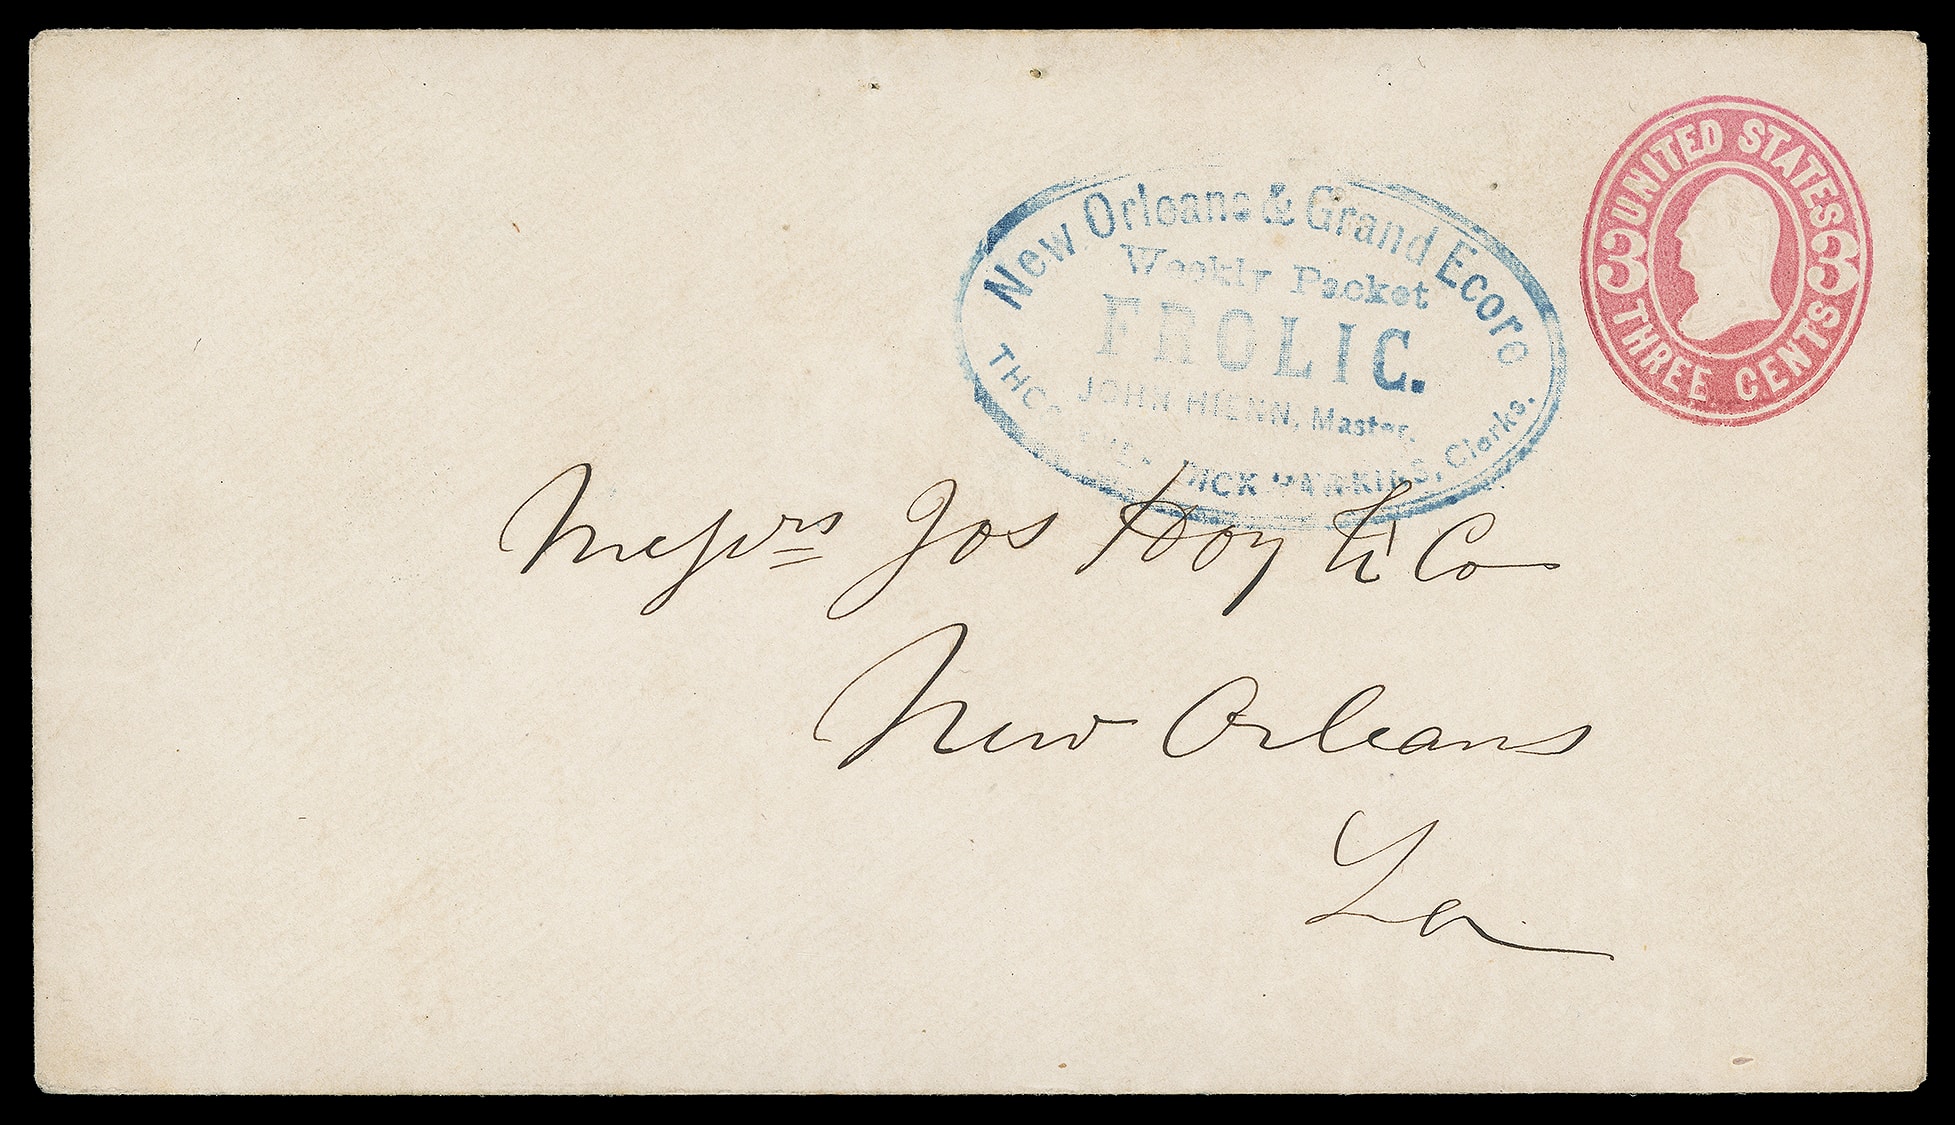 New Orleans & Grand Ecore
Weekly Packet
FROLIC.
JOHN HIENN, Master,
DICK HAWKINS, Clerks.
UNITED STATES
3 3
THREE CENTS
Messrs Jos Hoy & Co
New Orleans
La